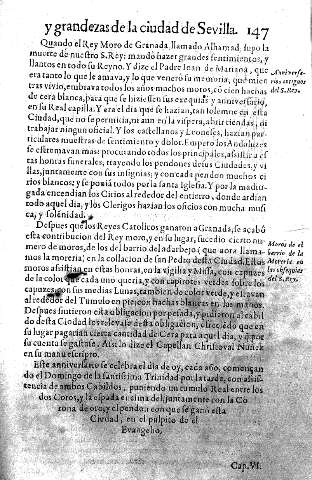 y grandezas de la ciudad de Sevilla. 147
Quando el Rey Moro de Granada, llamado Alhamad, supo la
muerte de nuestro S. Rey; mandò hazer grandes sentimientos, y
llantos en todo su Reyno. Y dize el Padre Juan de Mariana, que
era tanto lo que le amava, y lo que venerò su memoria, que mien
tras vivio, embiava todos los años muchos moros, cõ cien hachas
de cera blanca, para que se hiziessen sus exequias y anniversario,
en su Real capilla. Y era el dia que se hazian, tan solemne en esta
Ciudad, que no se permitia, ni aun en la vispera, abrir tiendas, ni
trabajar ningun oficial. Y los castellanos y Leoneses, hazian par-
ticulares muestras de sentimiento y dolor. Empero los Andaluzes
se estremavan mas: procurando todos los principales, assistir a es
tas honras funerales, trayendo los pendones de sus Ciudades, y vi
llas, juntamente con sus insignias; y con cada pendon muchos ci
rios blancos; y se ponia todos por la santa Iglesia. Y por la madru-
gada encendian los Cirios al rededor del entierro, donde ardian
todo aquel dia, y los Clerigos hazian los oficios con mucha musi
ca, y solenidad.
Anniversa-
rios antiguos
del S. Rey.
Despues que los Reyes Catolicos ganaron a Granada, se acabò
esta contribucion del Rey moro, y en su lugar, sucedio cierto nu-
mero de moros, de los del barrio del adarbejo (que aora llama-
mos la moreria) en la collacion de san Pedro desta Ciudad. Estos
moros assistian en estas honras, en la vigilia y Missa, con capuzes
de la color que cada uno queria, y con capirotes verdes sobre los
capuzes, con sus medias Lunas, tambien de color verde, y estavan
al rededor del Tumulo en pie, con hachas blancas en las manos.
Despues sintieron esta obligacion por pesada, y pidieron al cabil
do desta Ciudad los relevasse desta obligacion, ofreciẽdo que en
su lugar pagarian cierta cantidad de Cera para aquel dia, y que
su cuenta se gastasse. Assi lo dize el Capellan Christoval Nuñez
en su manuescripto.
Moros de el
barrio de la
Moreria en
las exequias
del S. Rey.
Este anniversario se celebra el dia de oy, cada año, comenzan
do el Domingo de la santissima Trinidad por la tarde, con assis-
tencia de ambos Cabildos, puniendo un tumulo Real entre los
dos Coros, y la espada encima del juntamente con la Co
rona de oro, y el pendon con que se ganò esta
Ciudad, en el pulpito de el
Evangelio,
Cap. VI.